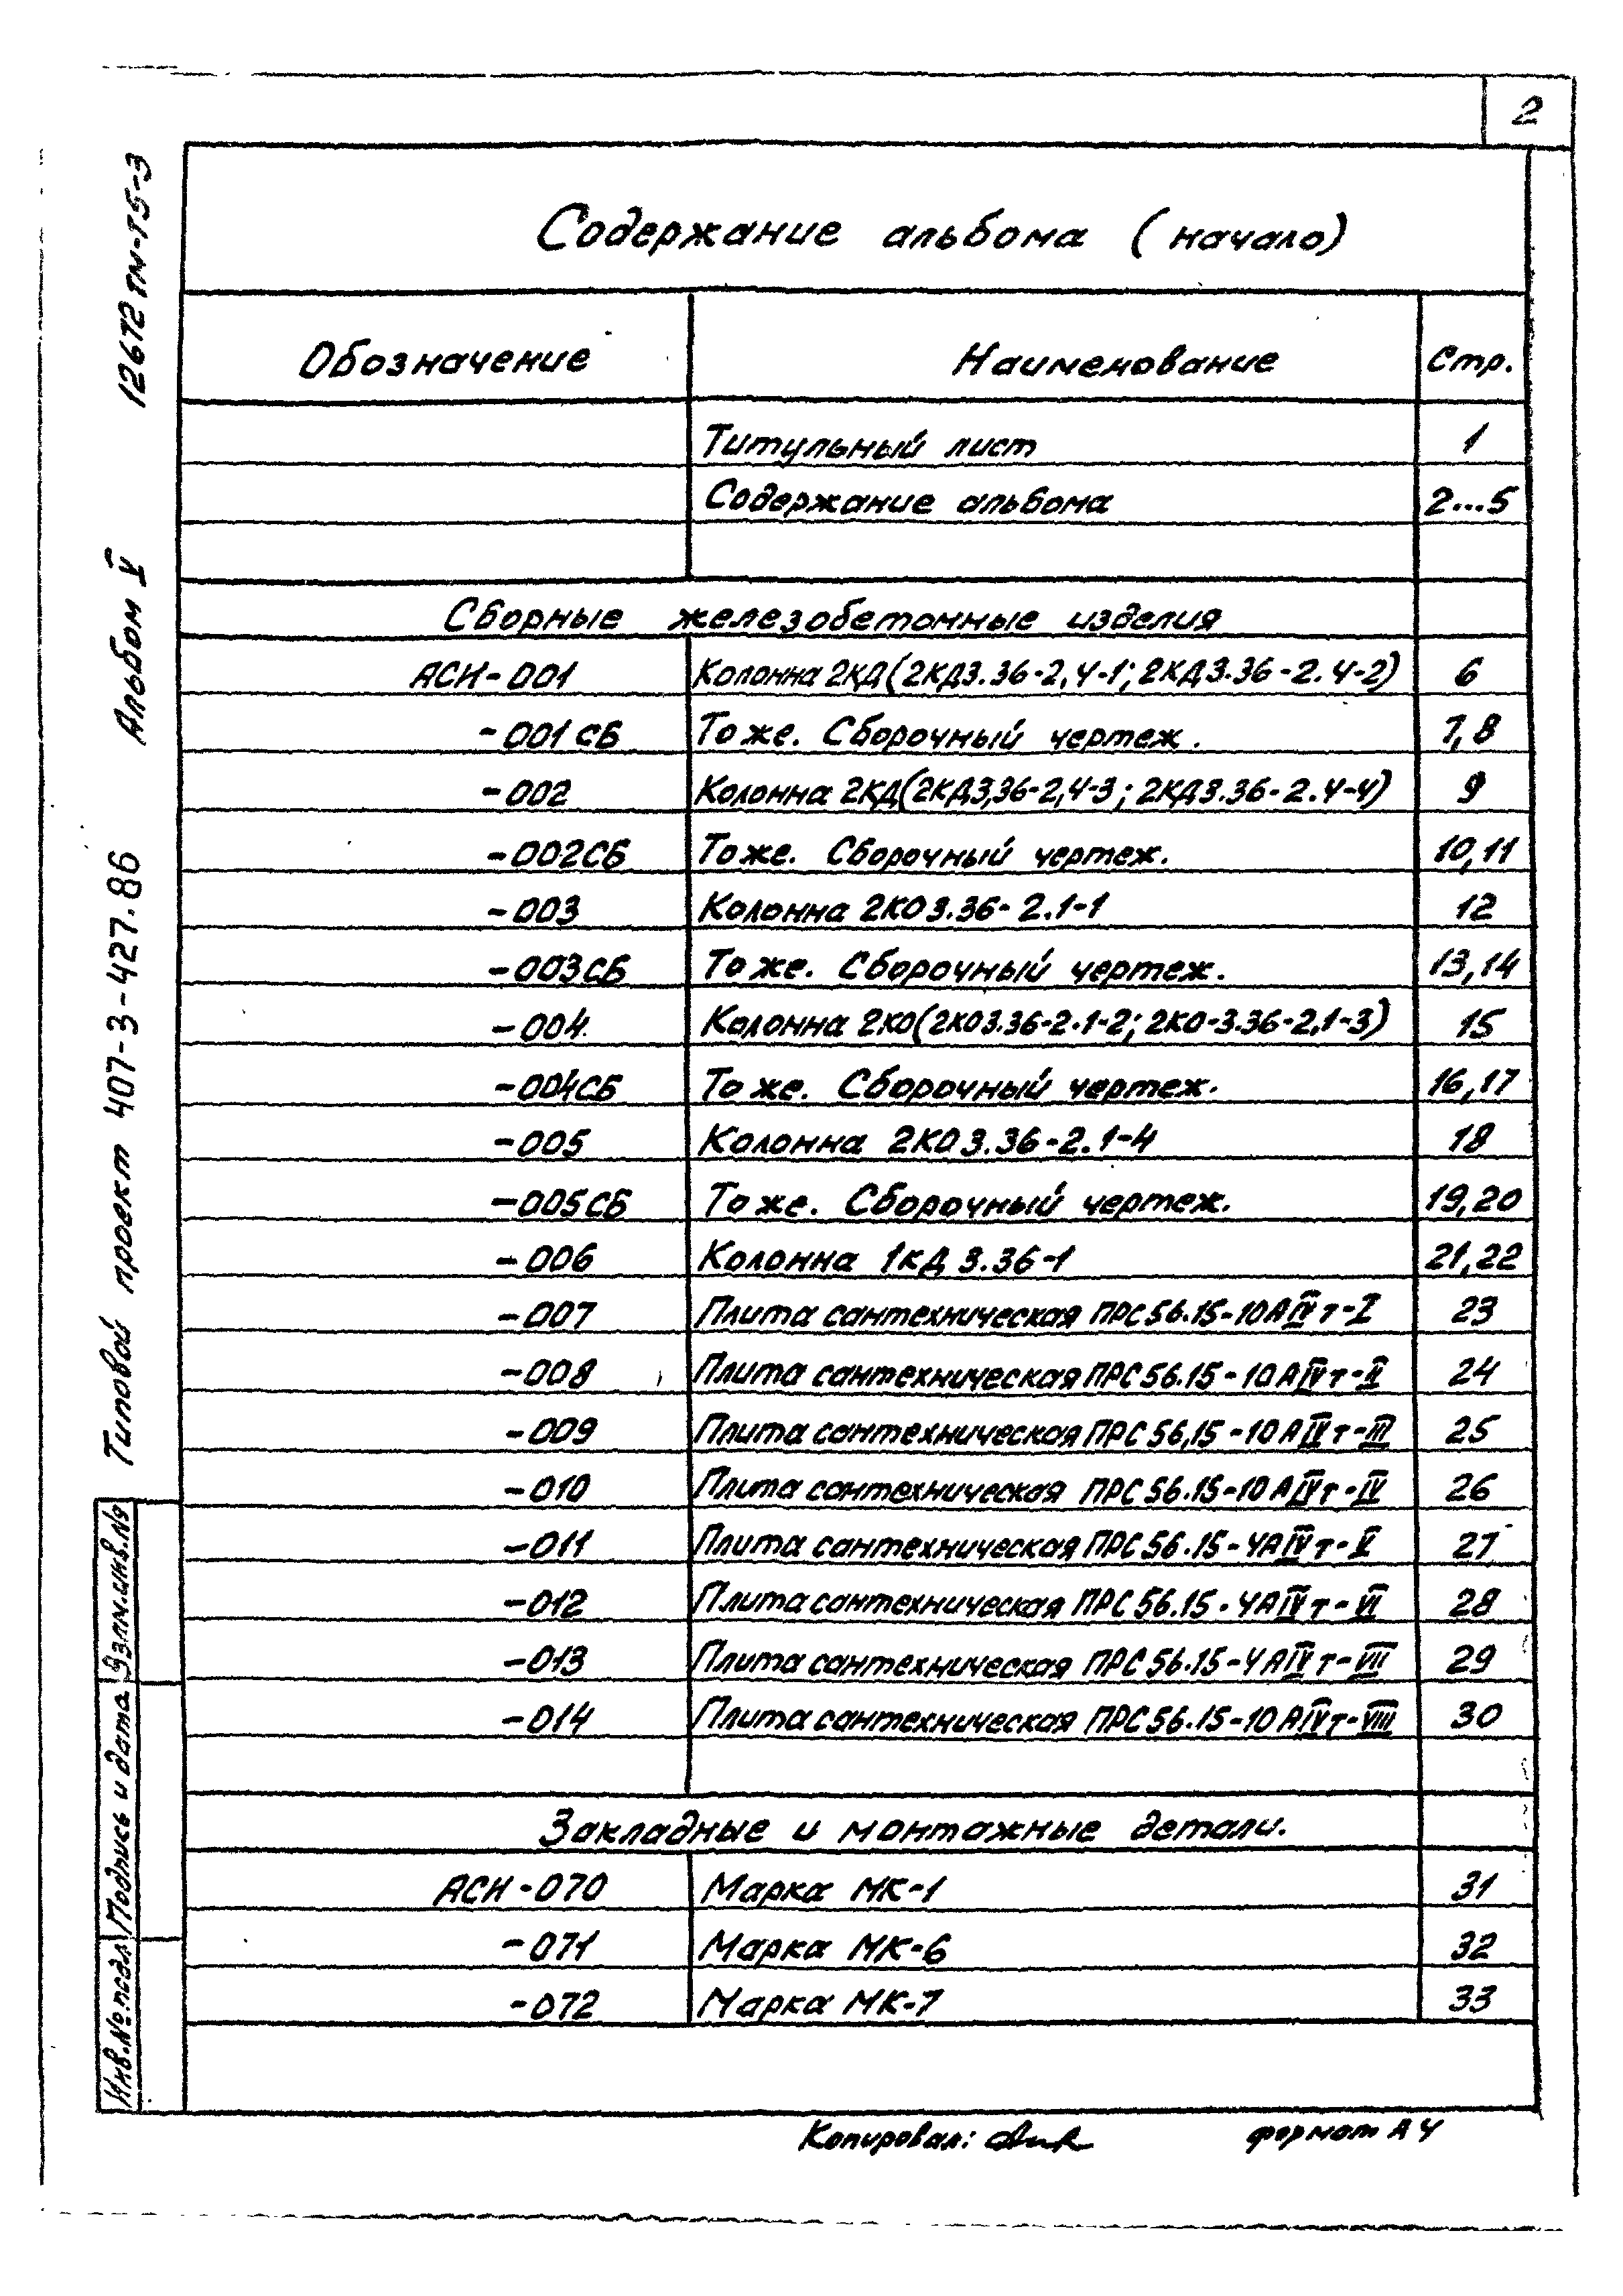 2
Содержание альбома (начало)
Обозначение Наименование Стр.
Титульный лист 1
Содержание альбома 2...5
Сборные железобетонные изделия
АСИ-001 Колонна 2КД(2КД3.36-2,4-1; 2КД3.36-2.4-2) 6
-001СБ То же. Сборочный чертеж. 7,8
-002 Колонна 2КД(2КД3,36-2,4-3; 2КД3.36-2.4-4) 9
-002СБ То же. Сборочный чертеж. 10,11
-003 Колонна 2КО3.36-2.1-1 12
-003СБ То же. Сборочный чертеж. 13,14
-004. Колонна 2КО(2КО3.36-2.1-2; 2КО-3.36-2,1-3) 15
-004СБ То же. Сборочный чертеж. 16,17
-005 Колонна 2КО3.36-2.1-4 18
-005СБ То же. Сборочный чертеж. 19,20
-006 Колонна 1КД3.36-1 21,22
-007 Плита сантехническая ПРС56.15-10АIVт-I 23
-008 Плита сантехническая ПРС56.15-10АIVт-II 24
-009 Плита сантехническая ПРС56,15-10АIVт-III 25
-010 Плита сантехническая ПРС56.15-10АIVт-IV 26
-011 Плита сантехническая ПРС56.15-4АIVт-V 27
-012 Плита сантехническая ПРС56.15-4АIVт-VI 28
-013 Плита сантехническая ПРС56.15-4АIVт-VII 29
-014 Плита сантехническая ПРС56.15-10АIVт-VIII 30
Закладные и монтажные детали.
АСИ-070 Марка МК-1 31
-071 Марка МК-6 32
-072 Марка МК-7 33
Копировал: формат А4
Типовой проект 407-3-427.86 Альбом V 12672тм-т5-3
Инв.№подл Подпись и дата Взам.инв.№